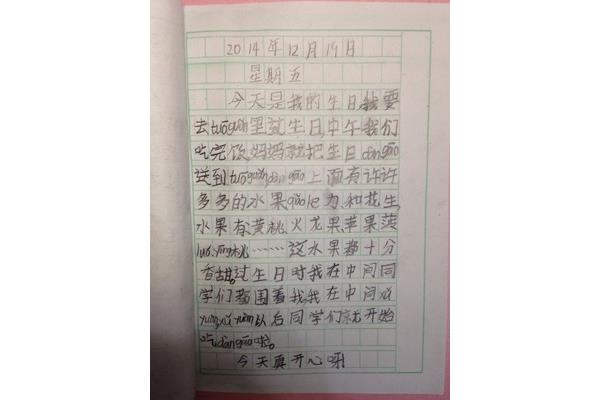 2014年12月19日
星期五
今天是我的生日,我要
去tuōguǎn里过生日,中午我们
吃完饭,妈妈就把生日dàngāo
送到tuōguǎn,dàngāo上面有许许
多多的水果qiǎo le力,和花生,
水果有:黄桃、火龙果、苹果、菠
luó、yīng桃……这水果都十分
香甜。过生日时我在中间同
学们都围着我,我在中间戏
yuàn,xǔ yuàn以后同学们就开始
吃dàngāo啦。
今天真开心呀!